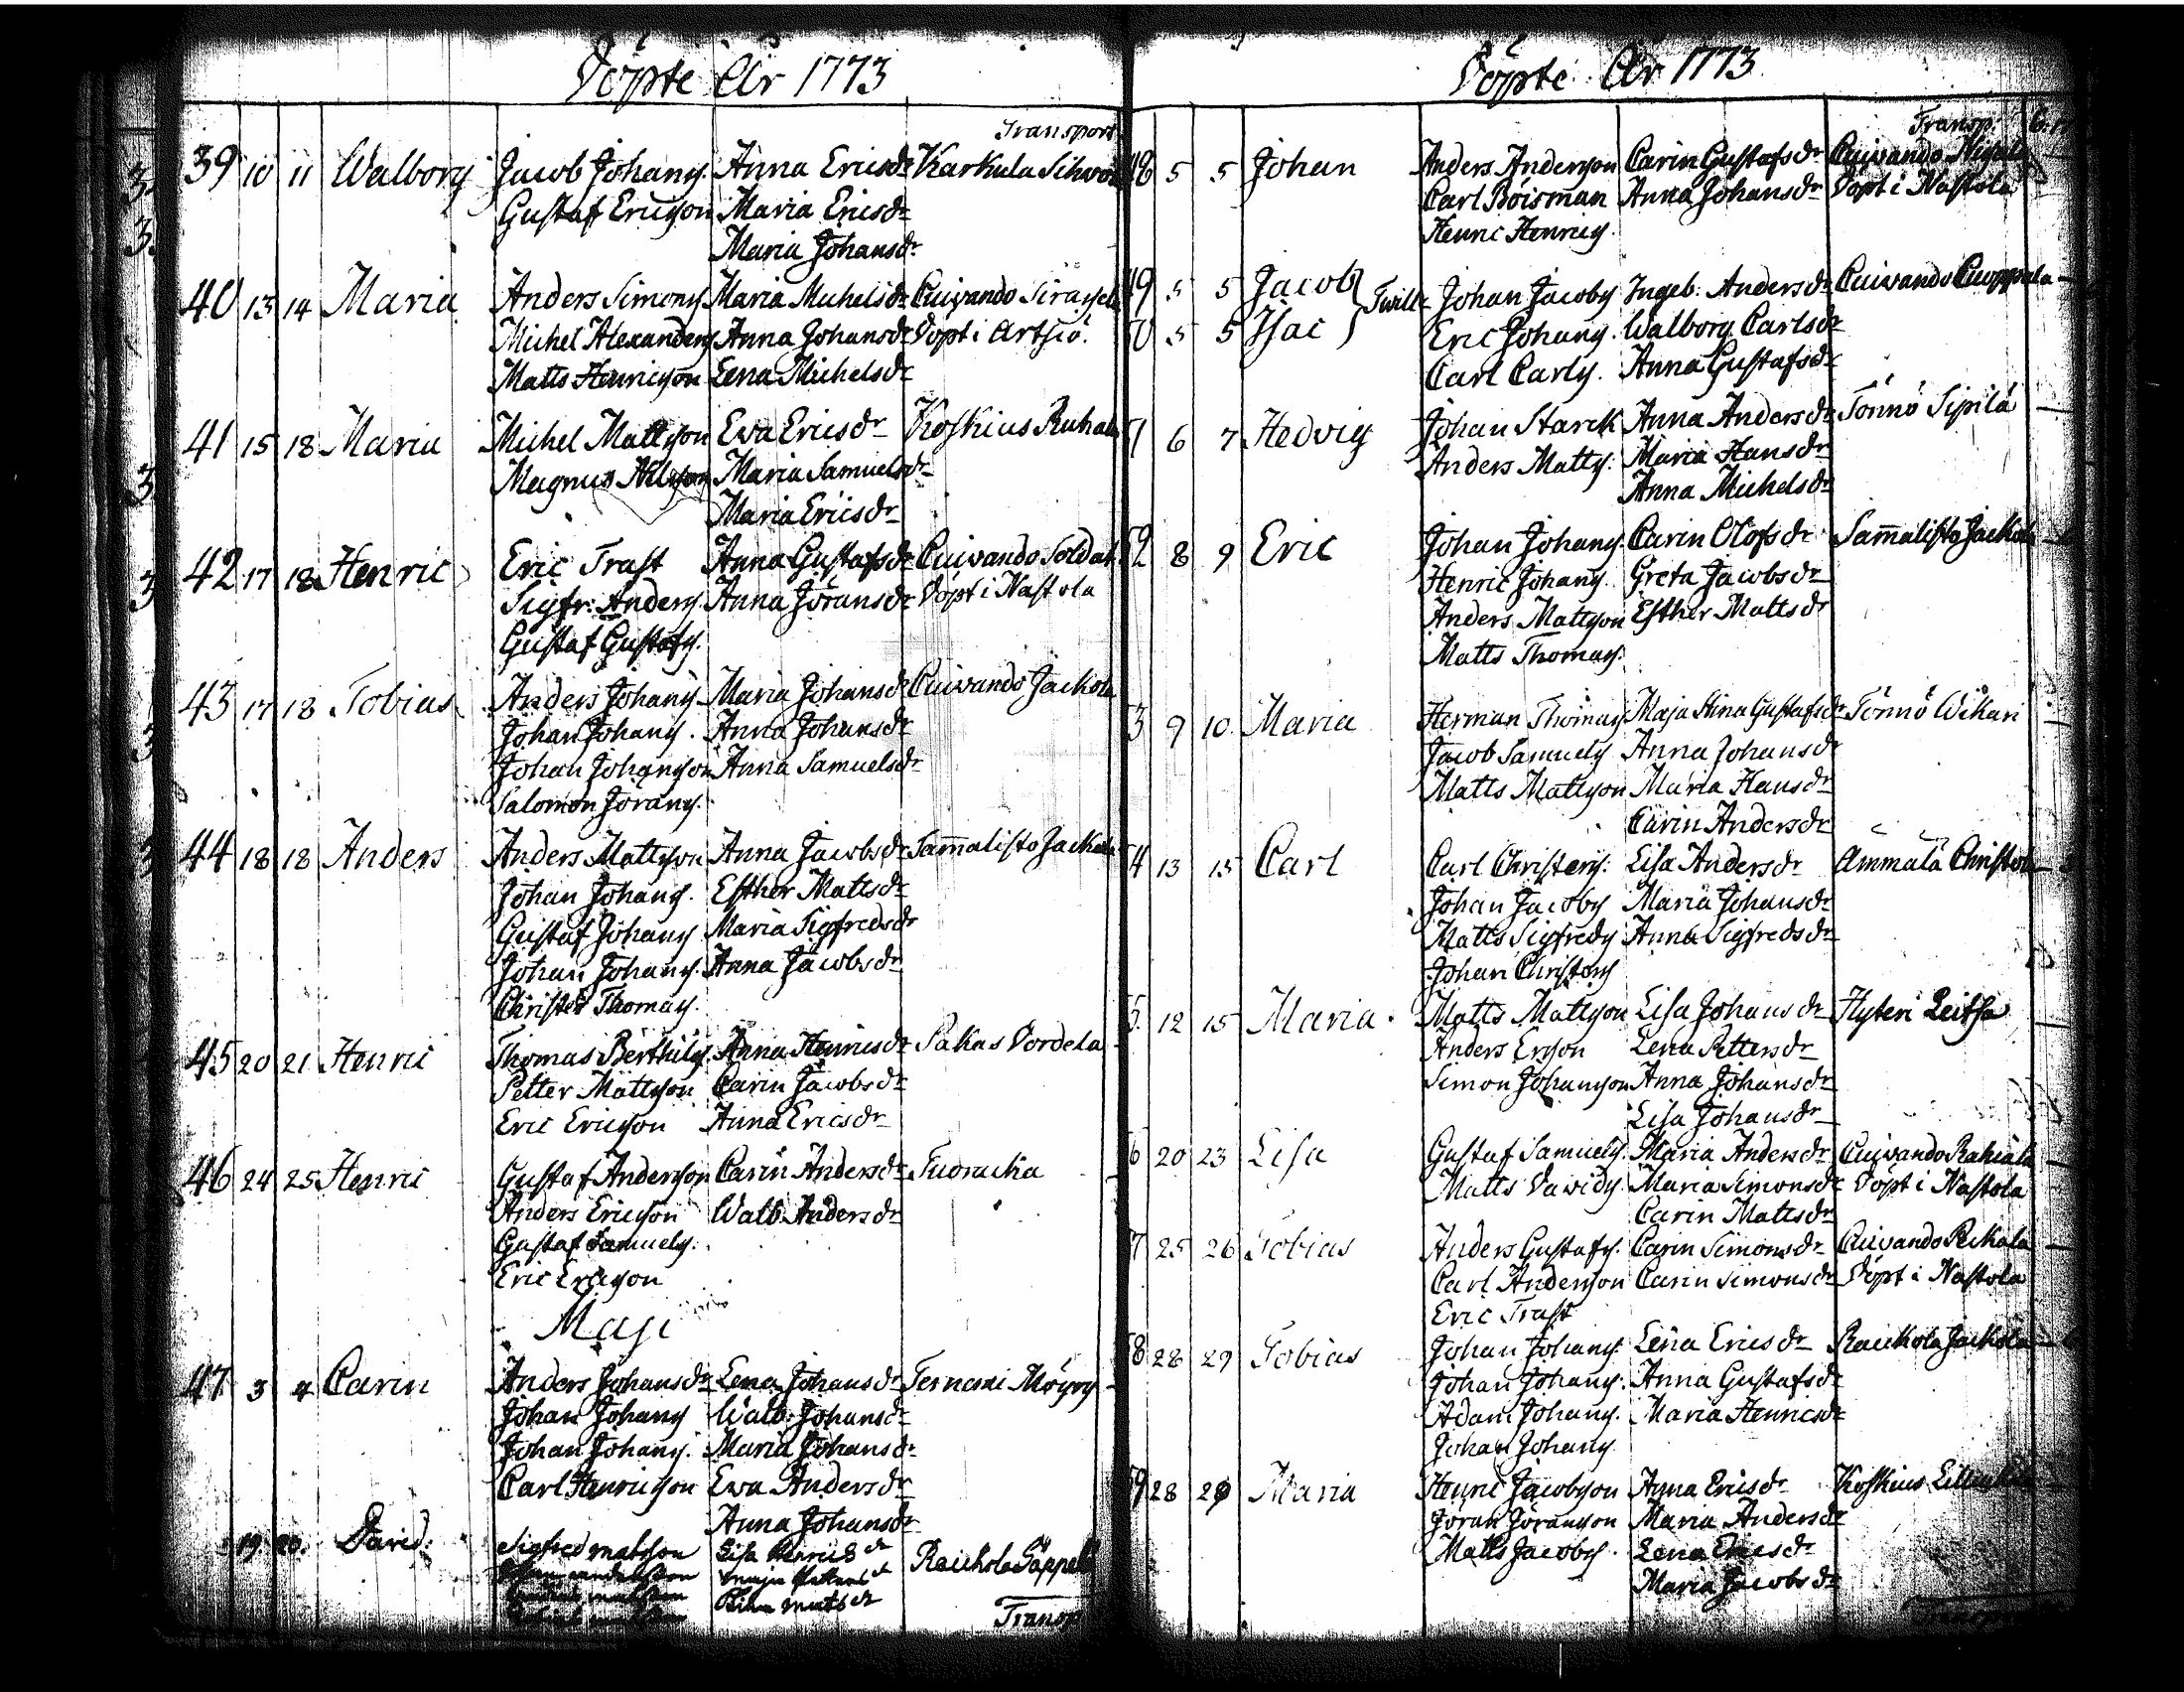 Döpte År 1773
Transport
39 10 11 Walborg Jacob Johans. Anna Ericsdr Karkula
Gustaf Ericson Maria Ericsdr
Maria Johansdr
40 13 14 Maria Anders Simons. Maria Michelsdr Cuivando
Michel Alexanders Anna Johansdr Döpt i Artsiö.
Matts Henricson Lena Michelsdr
41 15 18 Maria Michel Mattson Ewa Ericsdr Koskius
Magnus Nilson Maria Samuelsdr
Maria Ericsdr
42 17 18 Henric Eric Trast Anna Gustafsdr Cuivando Soldat
Sigfr: Anders. Anna Göransdr Döpt i Nastola
Gustaf Gustafs.
43 17 18 Tobias Anders Johans. Maria Johansdr Cuivando Jackola
Johan Johans. Anna Johansdr
Johan Johanson Anna Samuelsdr
Salomon Görans.
44 18 18 Anders Anders Mattson Anna Jacobsdr Sam̄alisto Jackola
Johan Johans. Esther Mattsdr
Gustaf Johans. Maria Sigfredsdr
Johan Johans. Anna Jacobsdr
Christer Thomas.
45 20 21 Henric Thomas Berthils. Anna Henricsdr Pakas Dordela
Petter Mattson Carin Jacobsdr
Eric Ericson Anna Ericsdr
46 24 25 Henric Gustaf Anderson Carin Andersdr Tuoracka
Anders Ericson Walb. Andersdr
Gustaf Samuels.
Eric Ericson
Maji
47 3 4 Carin Anders Johansdr Lena Johansdr Ternomi Möyry
Johan Johans Walb. Johansdr
Johan Johans. Maria Johansdr
Carl Henricson Ewa Andersdr
Anna Johansdr
19. 20. David. Sigfred matsson Lisa Henricsdr Raickola Säppelä
Transp
Döpte År 1773
Transp.
48 5 5 Johan Anders Anderson Carin Gustafsdr Cuivando
Carl Boisman Anna Johansdr Döpt i Nastola
Henric Henrics.
49 5 5 Jacob Twill. Johan Jacobs Ingeb: Andersdr Cuivando Cuoppala
50 5 5 Isac Eric Johans. Walborg Carlsdr
Carl Carls. Anna Gustafsdr
51 6 7 Hedvig Johan Starck Anna Andersdr Tönnö Sipilä
Anders Matts. Maria Hansdr
Anna Michelsdr
52 8 9 Eric Johan Johans. Carin Olofsdr Sam̄alisto Jackola
Henric Johans. Greta Jacobsdr
Anders Mattson Esther Mattsdr
Matts Thomas.
53 9 10 Maria Herman Thomas. Maja Stina Gustafsdr Tönnö Wikari
Jacob Samuels Anna Johansdr
Matts Mattson Maria Hansdr
Carin Andersdr
54 13 15 Carl Carl Christers. Lisa Andersdr Ammälä Christola
Johan Jacobs Maria Johansdr
Matts Sigfreds Anna Sigfredsdr
Johan Christers
55 12 15 Maria Matts Mattson Lisa Johansdr Hyteri Leitsa
Anders Erson Lena Pettersdr
Simon Johanson Anna Johansdr
Lisa Johansdr
56 20 23 Lisa Gustaf Samuels. Maria Andersdr Cuivando Rahiala
Matts Davids. Maria Simonsdr Döpt i Nastola
Carin Mattsdr
57 25 26 Tobias Anders Gustafs. Carin Simonsdr Cuivando Reikala
Carl Anderson Carin Simonsdr Döpt i Nastola
Eric Trast
58 28 29 Tobias Johan Johans. Lena Ericsdr Raickola Jackola
Johan Johans. Anna Gustafsdr
Adam Johans. Maria Henricsdr
Johan Johans
59 28 29 Maria Henric Jacobson Anna Ericsdr Koskius
Göran Göranson Maria Andersdr
Matts Jacobs. Lena Ericsdr
Maria Jacobsdr